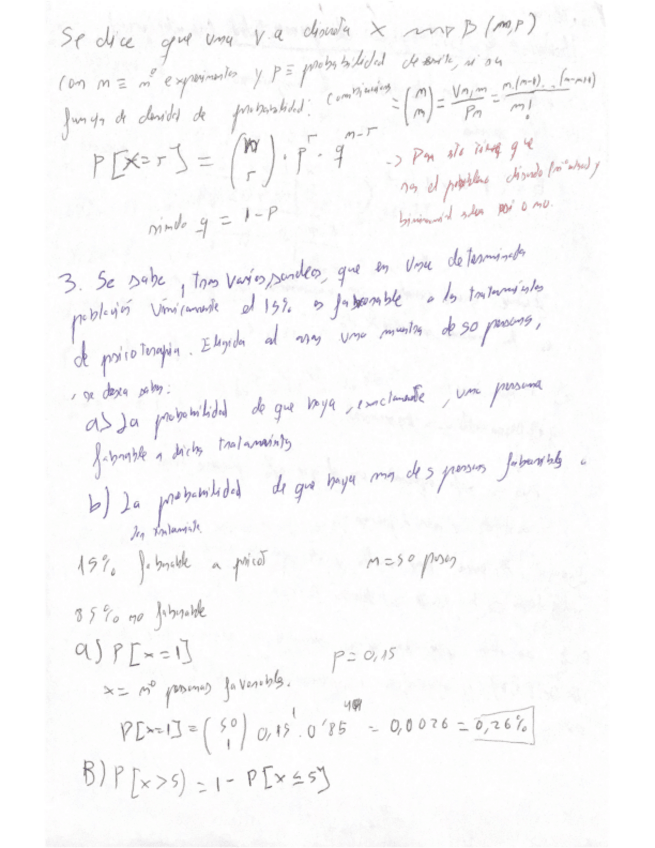 Se dice que una v.a discreta X ⟿ B(n,p)
con n ≡ nº experimentos y P ≡ probabilidad de exito, si su
función de densidad de probabilidad:
P[X=r] = (n r) · p^r · q^(n-r)
siendo q = 1-P
3. Se sabe, tras varios sondeos, que en una determinada
población únicamente el 15% es favorable a los tratamientos
de psicoterapia. Elegida al azar una muestra de 50 personas,
se desea saber:
a) La probabilidad de que haya, exactamente, una persona
favorable a dichos tratamientos
b) La probabilidad de que haya mas de 5 personas favorables a
los tratamientos.
15% favorable a psicot n=50
85% no favorable
a) P[x=1] p=0,15
x= nº personas favorables.
P[x=1] = (50 1) 0,15^1 · 0'85^49 = 0,0026 = 0,26%
B) P[x>5) = 1 - P[x≤5]